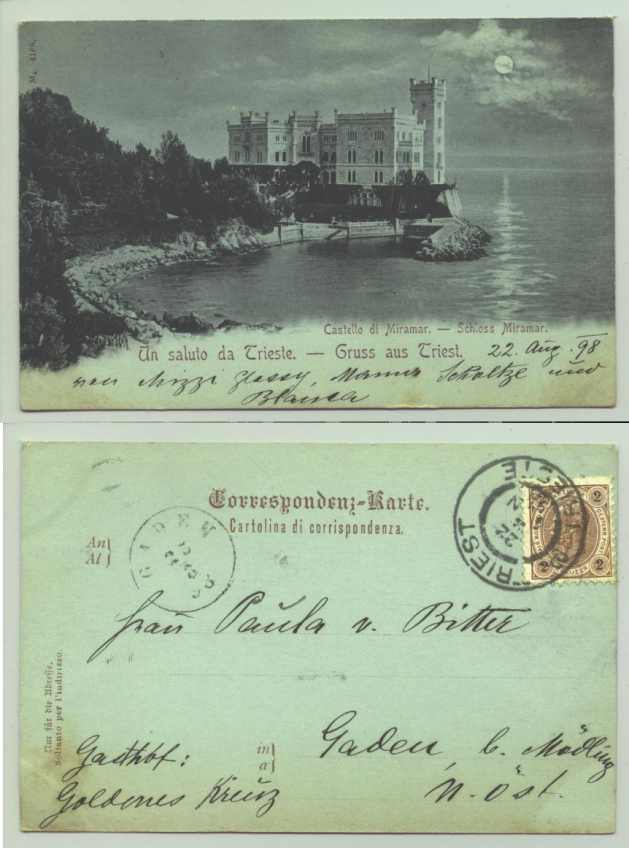 M. 4168.
Castello di Miramar. — Schloss Miramar.
Un saluto da Trieste. — Gruss aus Triest. 22. Aug. 98
von Mizzi Glossy, Mama Scholtze und
Bianca
Correspondenz-Karte.
Cartolina di corrispondenza.
TRIEST TRIESTE
2 2
2 2
GADEN
An
Al
Frau Paula v. Bitter
Nur für die Adresse.
Soltanto per l'indirizzo.
in
a
Gaden, b. Mödling
N. öst.
Gasthof:
Goldenes Kreuz